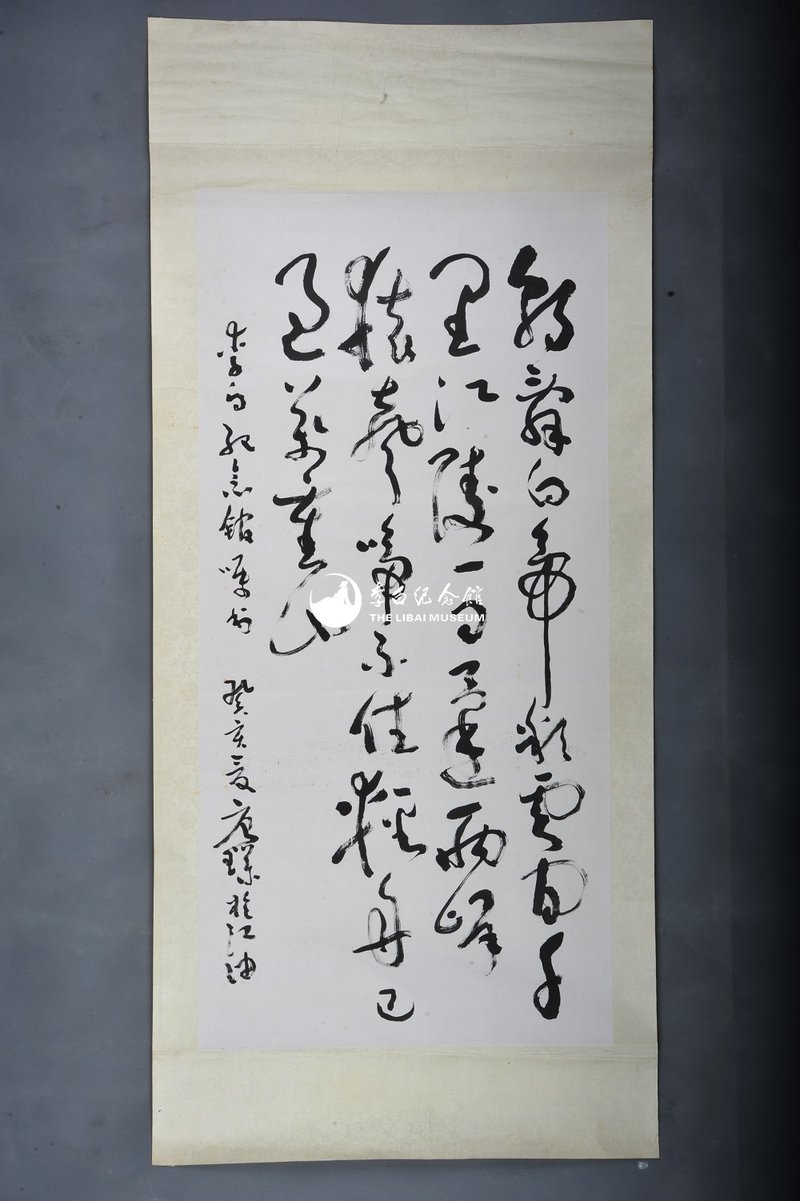 朝辭白帝彩雲間千
里江陵一日還兩岸
猿聲啼不住輕舟已
過萬重山
李白紀念館囑書 癸亥夏 於江油
李白纪念館
THE LIBAI MUSEUM